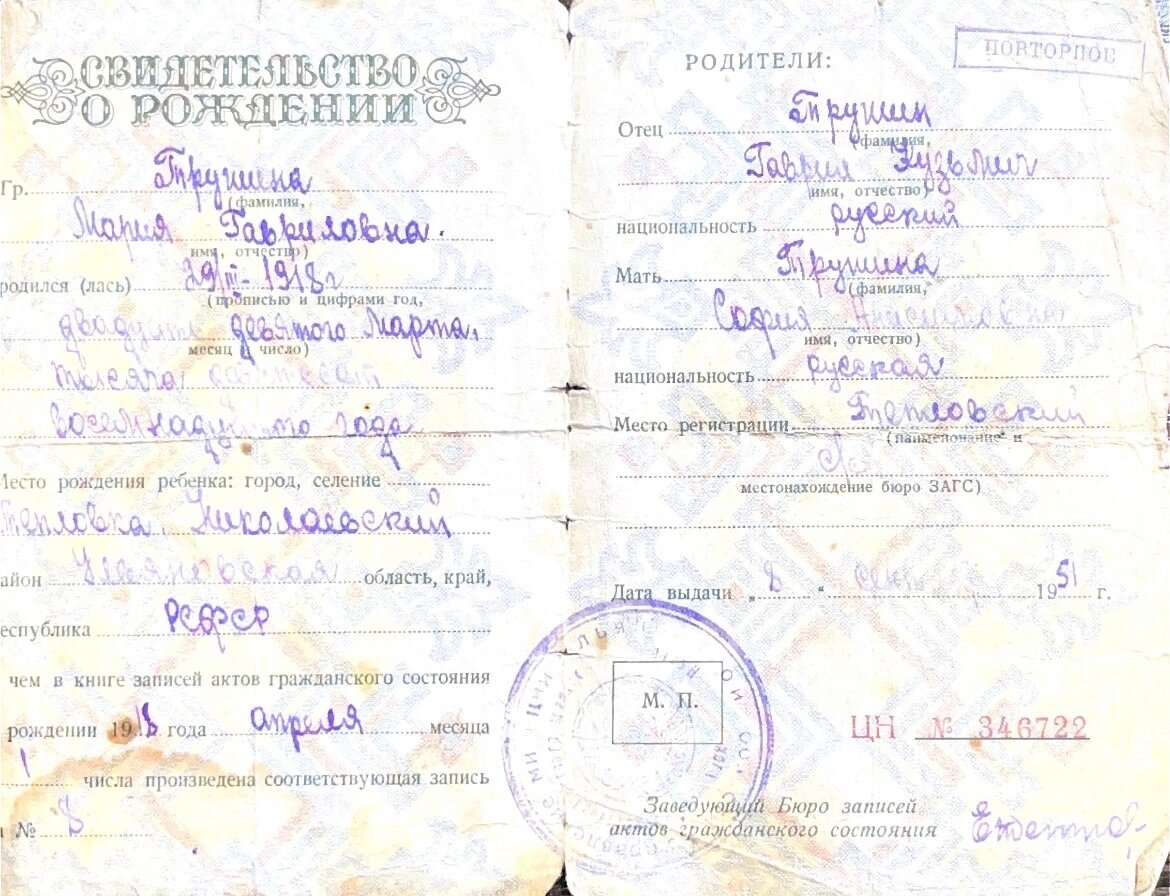 СВИДЕТЕЛЬСТВО
О РОЖДЕНИИ
Гр. Трушина
(фамилия,
Мария Гавриловна.
имя, отчество)
родился (лась) 29/III - 1918 г
(прописью и цифрами год,
двадцать девятого Марта,
месяц и число)
тысяча девятьсот
восемнадцатого года
Место рождения ребенка: город, селение
Тепловка, Николаевский
район Ульяновская область, край,
республика РСФСР
чем в книге записей актов гражданского состояния
рождении 1918 года апреля месяца
1 числа произведена соответствующая запись
№ 8
ПОВТОРНОЕ
РОДИТЕЛИ:
Отец Трушин
(фамилия,
Гаврил Кузьмич
имя, отчество)
национальность русский
Мать Трушина
(фамилия,
София
имя, отчество)
национальность русская
Место регистрации Тепловский
(наименование и
местонахождение бюро ЗАГС)
Дата выдачи „8“ 1951 г.
М. П.
ЦН № 346722
Заведующий Бюро записей
актов гражданского состояния